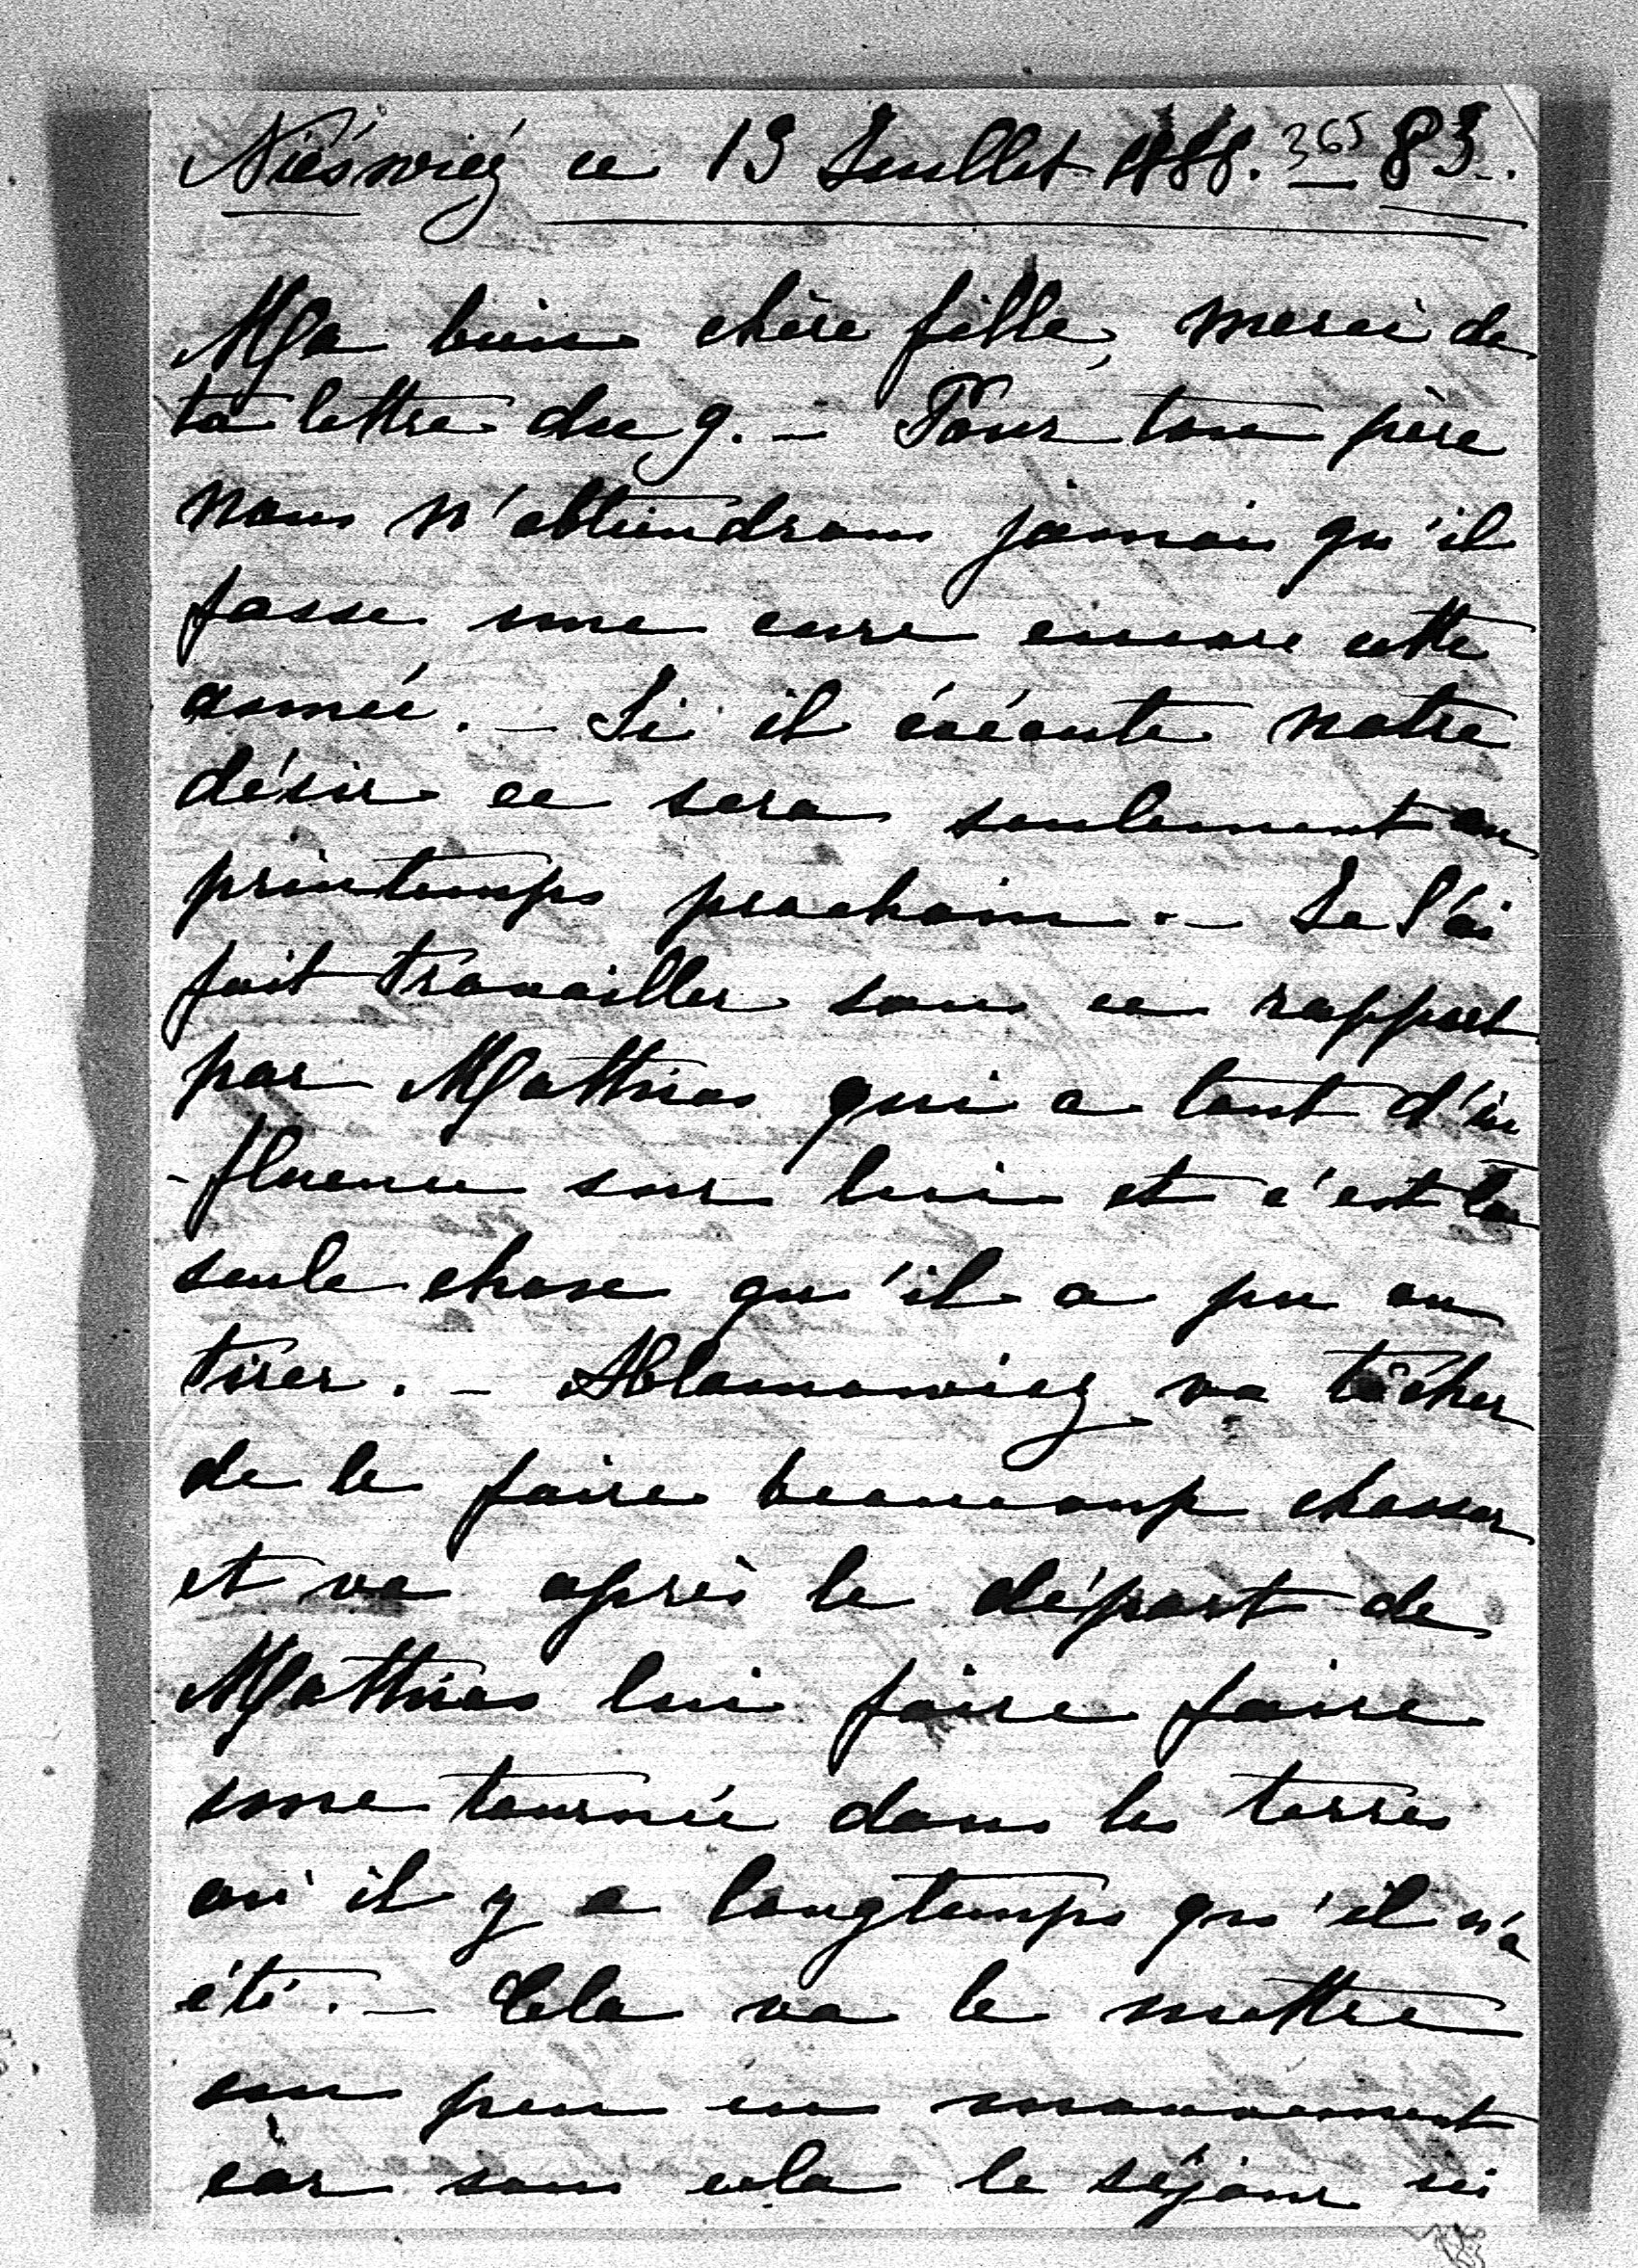 Nieśwież ce 13 Juillet 1888. 365 83.
Ma bien chère fille, merci de
ta lettre du 9. – Pour ton père
nous n'obtiendrons jamais qu'il
fasse une cure encore cette
année. – Si il éxécute notre
désir ce sera seulement au
printemps prochain. – Je l'ai
fait travailler sous ce rapport
par Matthias qui a tant d'in
-fluence sur lui et c'est la
seule chose qu'il a pu en
tirer. – Ablamowicz va tâcher
de le faire beaucoup chasser
et va après le départ de
Matthias lui faire faire
une tournée dans les terres
où il y a longtemps qu'il n'a
été. – Cela va le mettre
un peu en mouvement
car sans cela le séjour ici